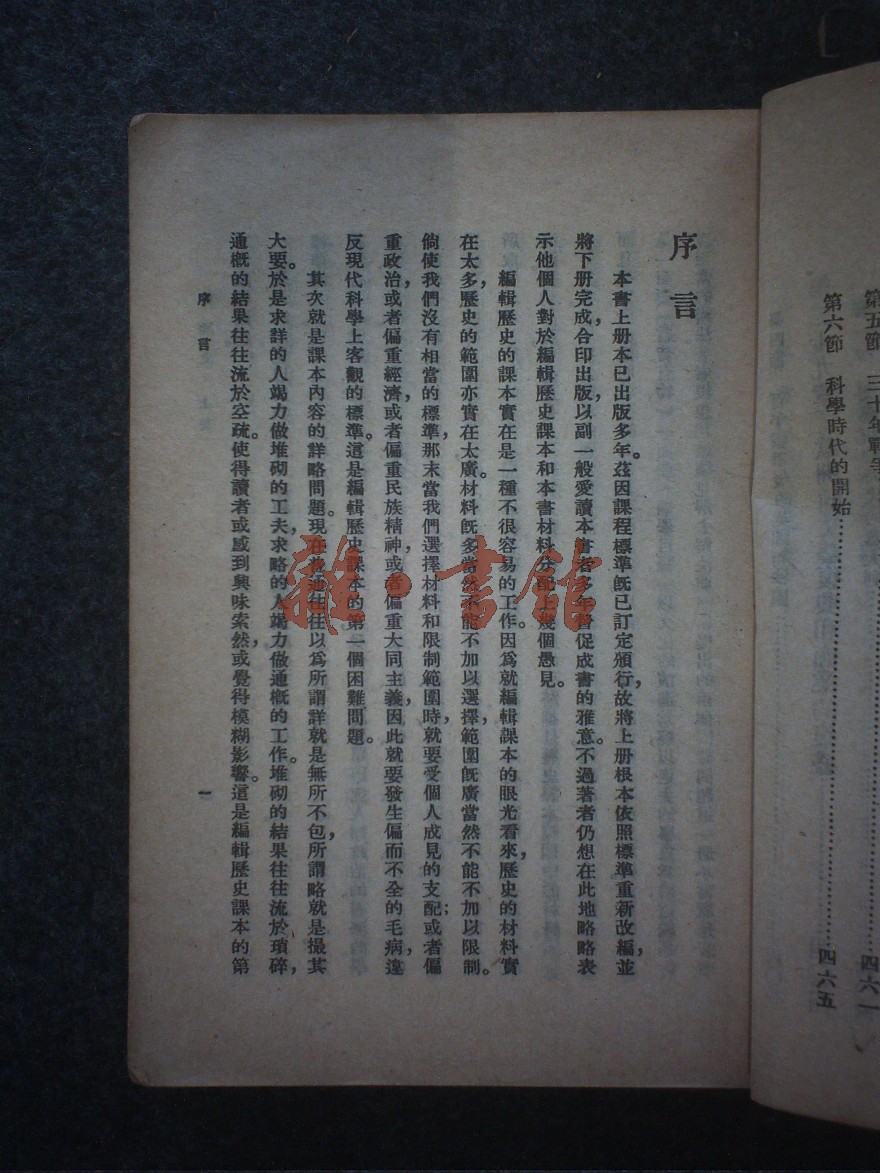 第五節　三十年戰爭……四六一
第六節　科學時代的開始……四六五
序言
本書上册本已出版多年。茲因課程標準既已訂定頒行，故將上册根本依照標準重新改編，並
將下册完成，合印出版，以副一般愛讀本書者多年督促成書的雅意。不過著者仍想在此地略略表
示他個人對於編輯歷史課本和本書材料分配上幾個愚見。
編輯歷史的課本實在是一種不很容易的工作。因爲就編輯課本的眼光看來，歷史的材料實
在太多，歷史的範圍亦實在太廣。材料既多，當然不能不加以選擇，範圍既廣，當然不能不加以限制。
倘使我們沒有相當的標準，那末當我們選擇材料和限制範圍時，就要受個人成見的支配；或者偏
重政治，或者偏重經濟，或者偏重民族精神，或者偏重大同主義，因此就要發生偏而不全的毛病，違
反現代科學上客觀的標準。這是編輯歷史課本的第一個困難問題。
其次就是課本內容的詳略問題。現在普通往往以爲所謂詳就是無所不包，所謂略就是撮其
大要。於是求詳的人竭力做堆砌的工夫，求略的人竭力做通概的工作。堆砌的結果往往流於瑣碎，
通概的結果往往流於空疏。使得讀者或感到興味索然，或覺得模糊影響。這是編輯歷史課本的第
序言
一
雜·書館